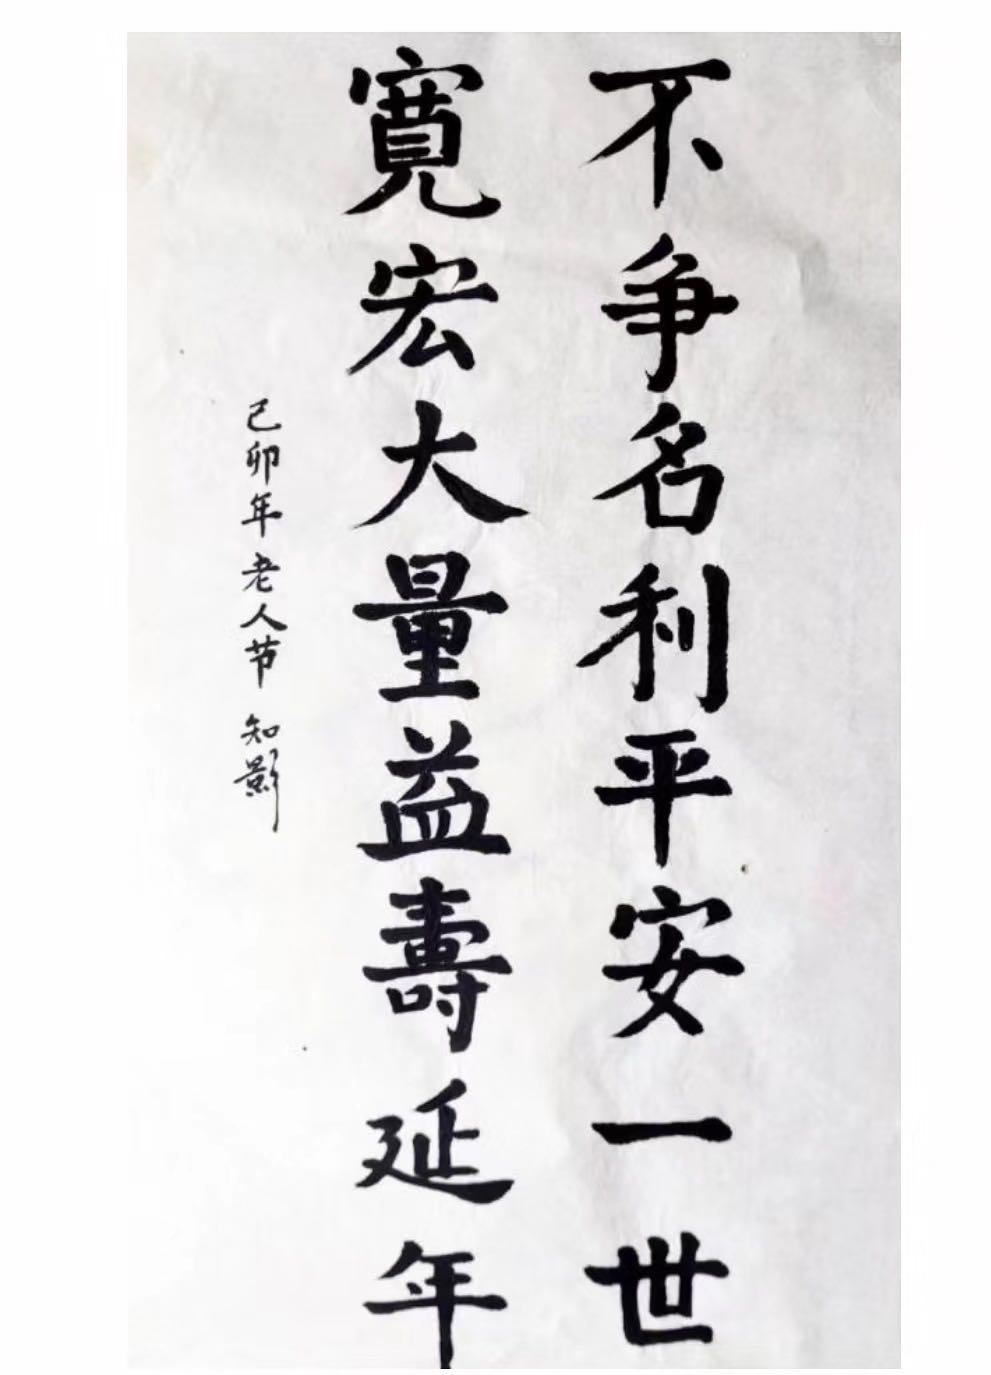 不争名利平安一世
寬宏大量益壽延年
己卯年老人节 知影